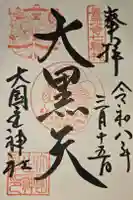 奉拝
令和八年
三月十五日
大黒天
大國主神社